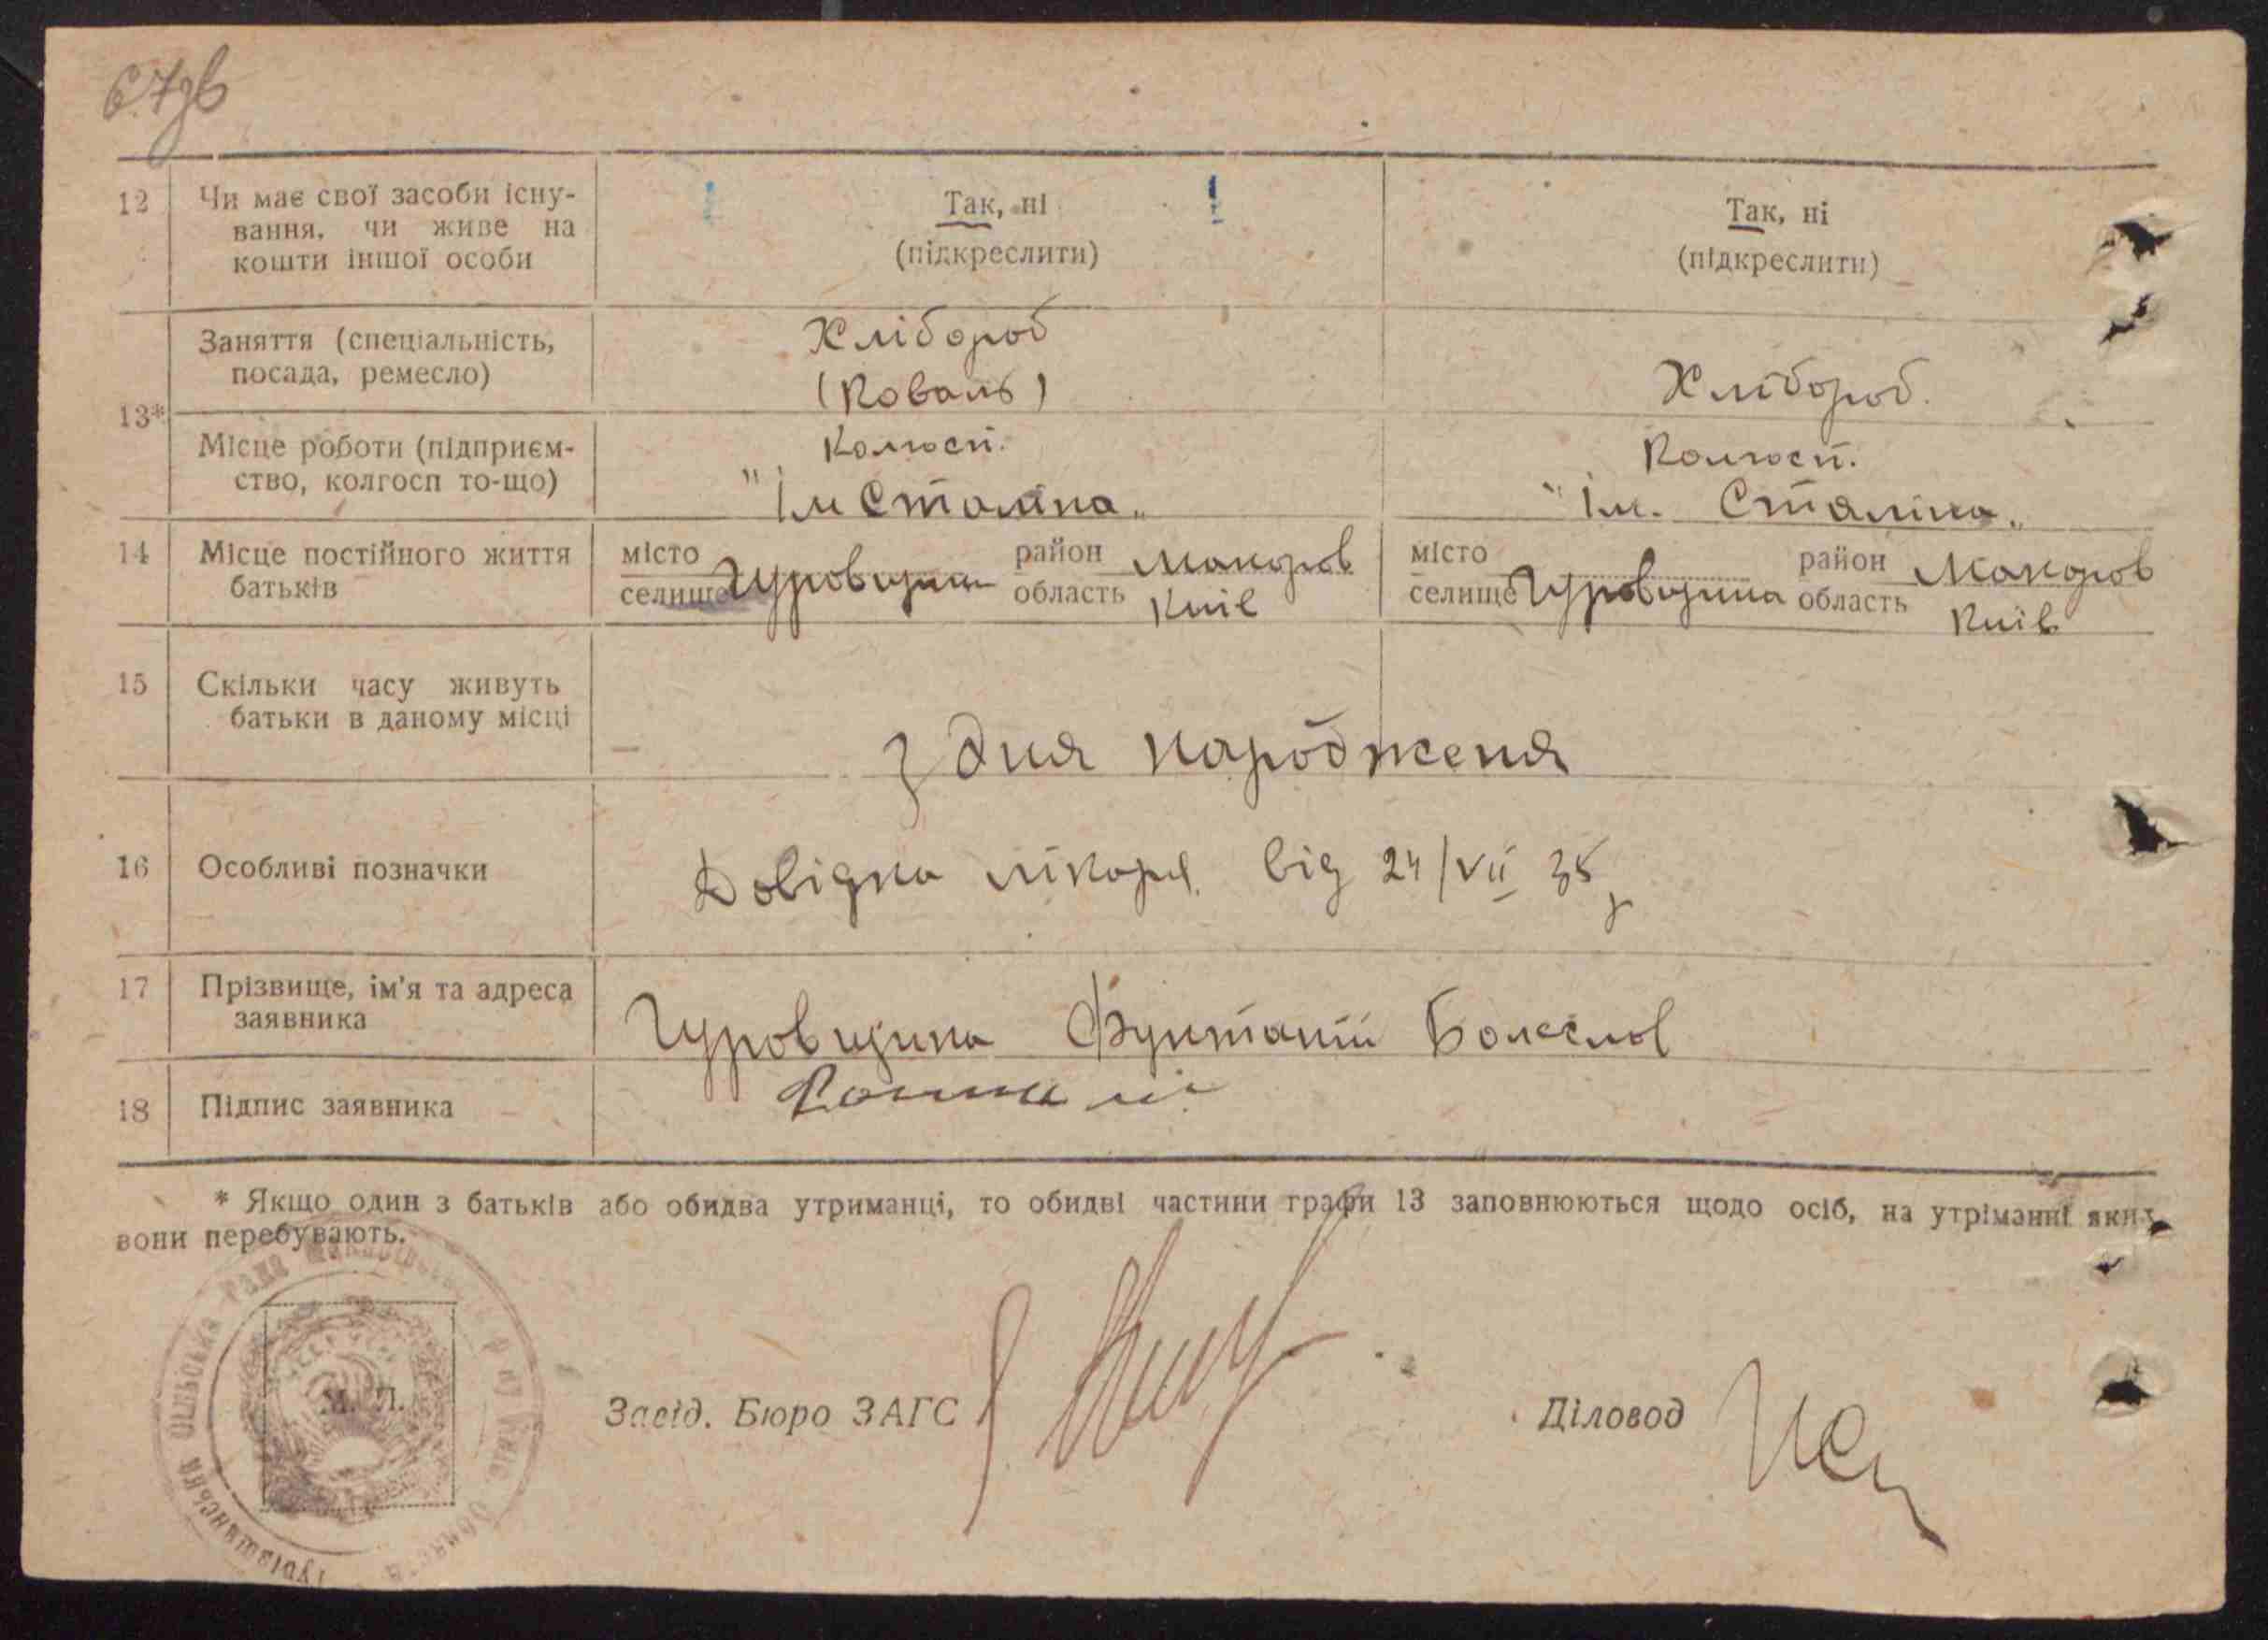 12 Чи має свої засоби існу-
вання, чи живе на
кошти іншої особи
Так, ні
(підкреслити)
Так, ні
(підкреслити)
13*
Заняття (спеціальність,
посада, ремесло)
Хлібороб
(Коваль)
Хлібороб.
Місце роботи (підприєм-
ство, колгосп то-що)
Колгосп.
"Ім Сталіна"
Колгосп.
"Ім. Сталіна"
14 Місце постійного життя
батьків
місто
селище Гуровщина
район Макаров
область Київ
місто
селище Гуровщина
район Макаров
область Київ
15 Скільки часу живуть
батьки в даному місці
З дня народженя
16 Особливі позначки
Довідка лікаря від 24/VII 35 р
17 Прізвище, ім'я та адреса
заявника
Гуровщина Болеслав
18 Підпис заявника
* Якщо один з батьків або обидва утриманці, то обидві частини графи 13 заповнюються щодо осіб, на утріманні яких
вони перебувають.
М. П.
Завід. Бюро ЗАГС
Діловод